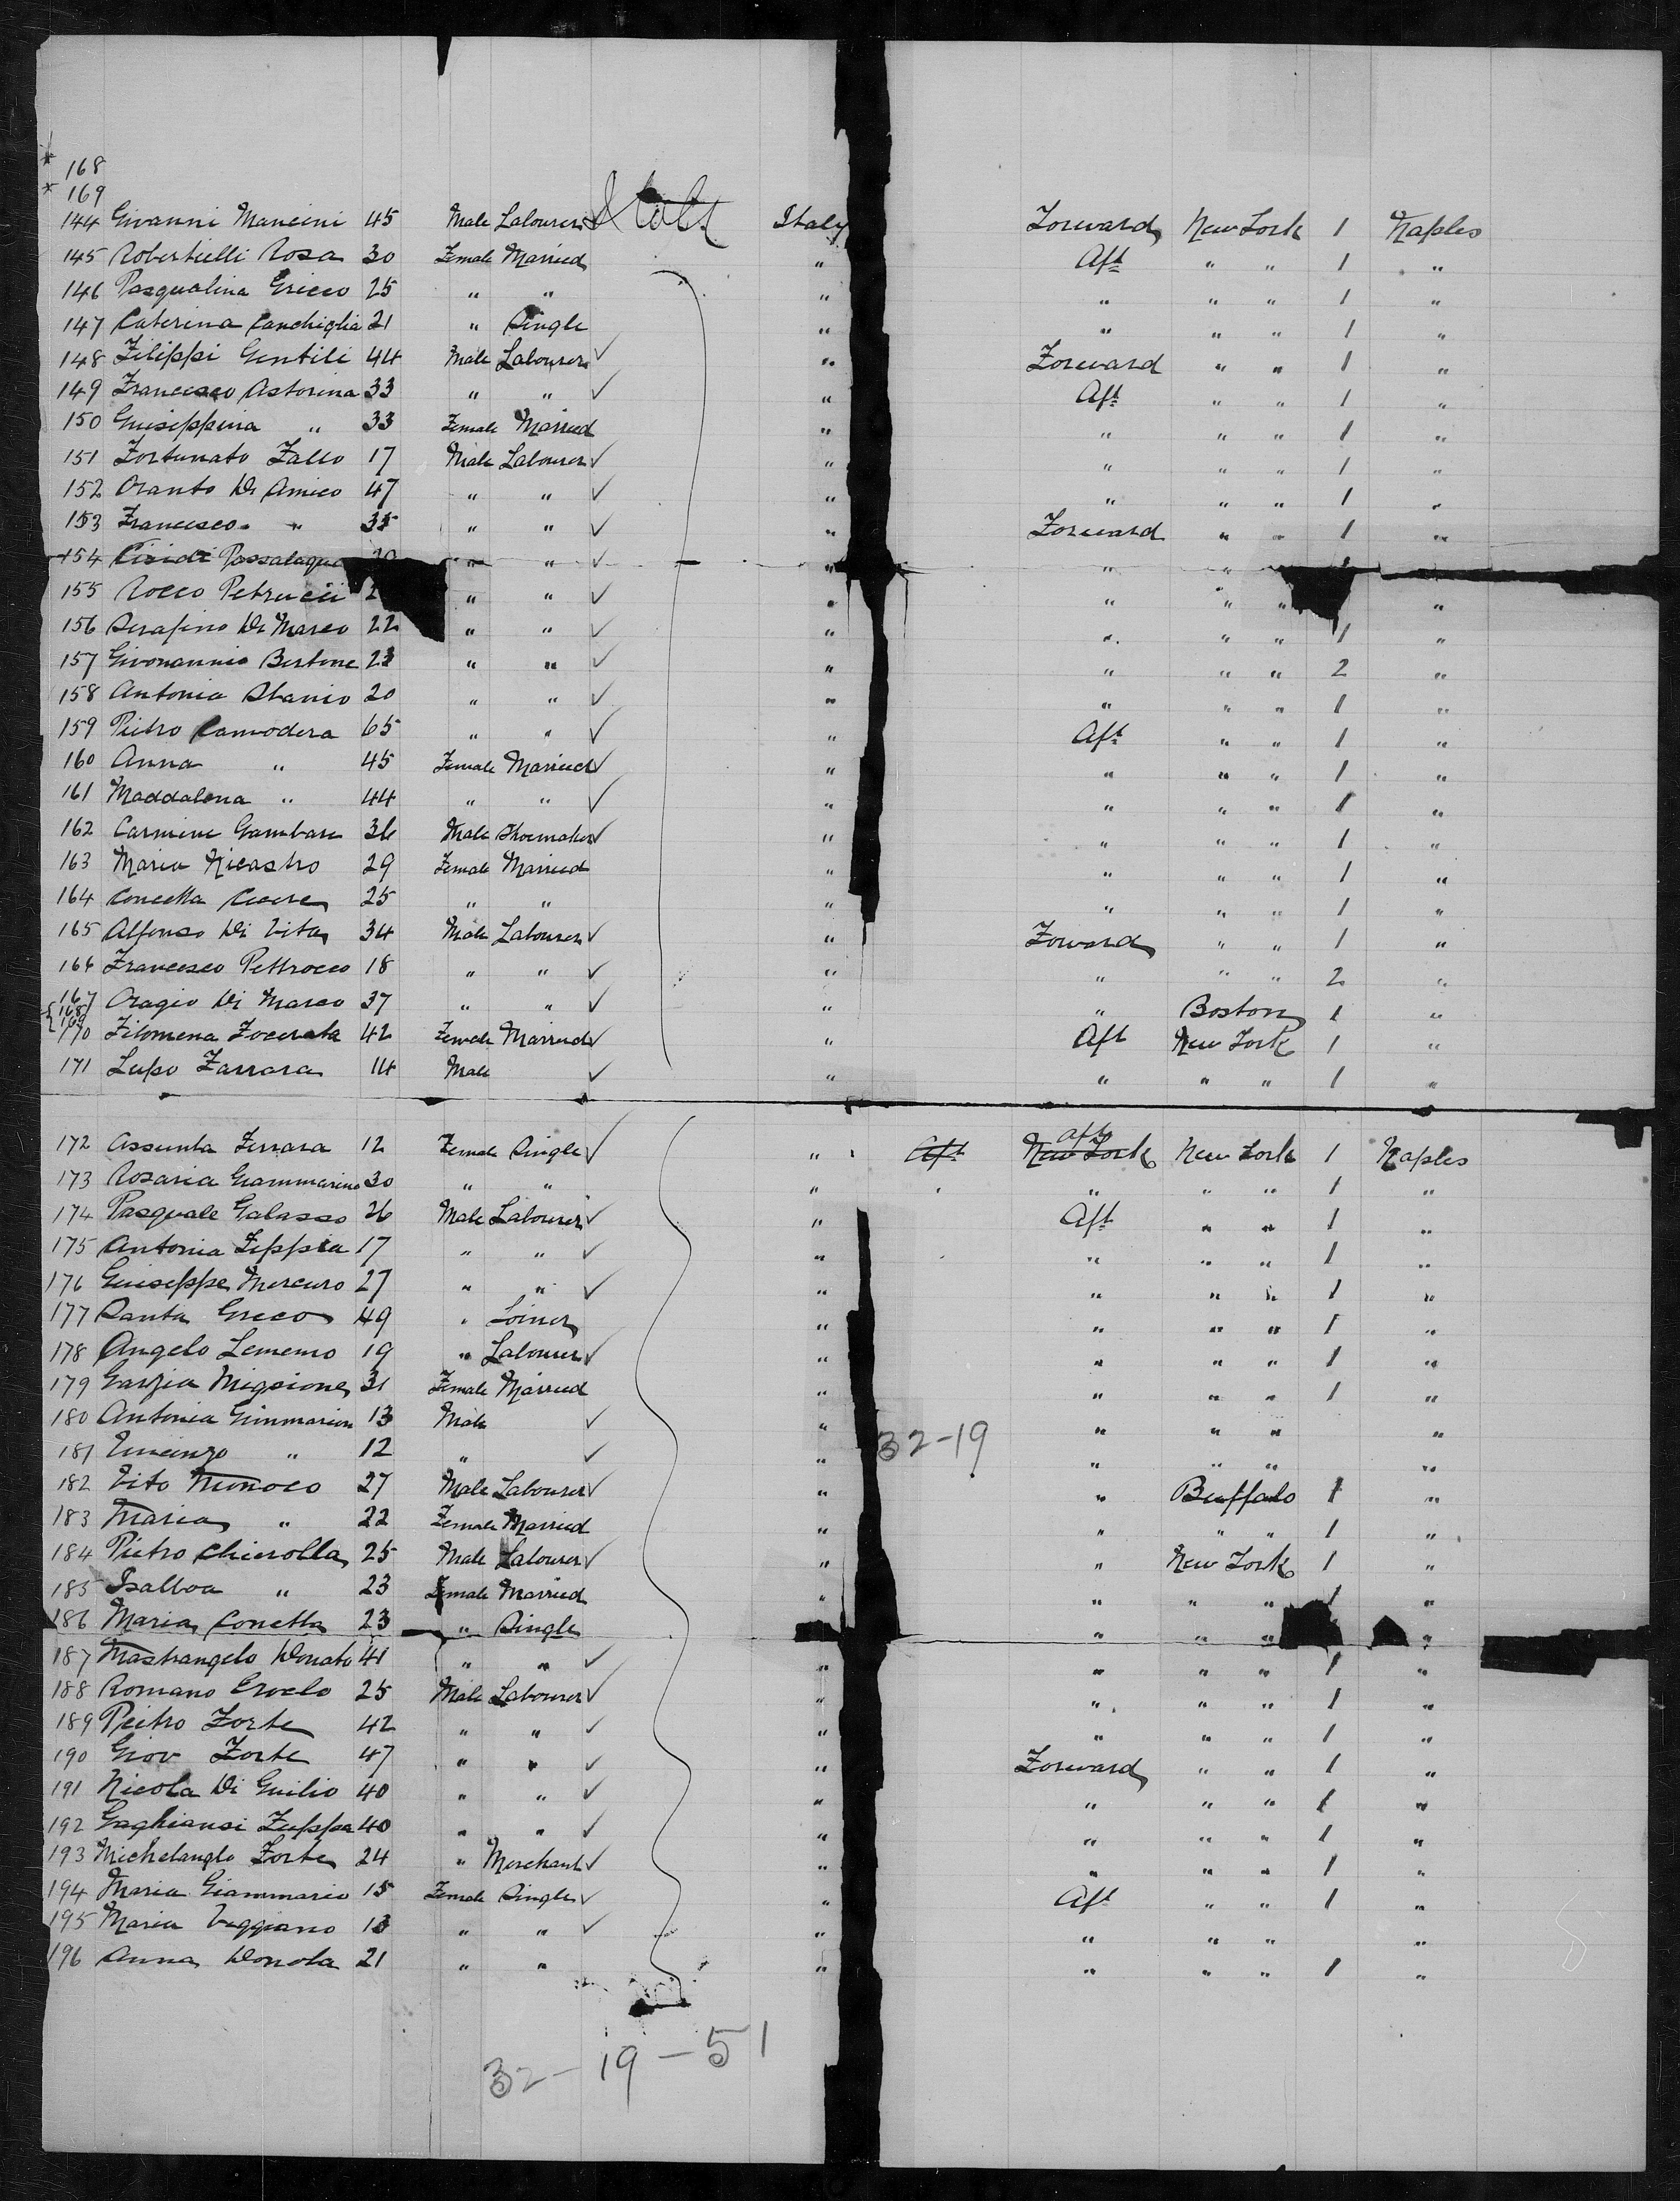 * 168
* 169
144 Givanni Mancini 45 Male Labourer Italy Forward New York 1 Naples
145 Robertielli Rosa 30 Female Married " Aft " " 1 "
146 Pasqualina Gricco 25 " " " " " " 1 "
147 Caterina Canchiglia 21 " Single " " " " 1 "
148 Filippi Gentili 44 Male Labourer ✓ " Forward " " 1 "
149 Francesco Astorina 33 " " ✓ " Aft " " 1 "
150 Guiseppina " 33 Female Married " " " " 1 "
151 Fortunato Fallo 17 Male Labourer ✓ " " " " 1 "
152 Oranto Di Amico 47 " " ✓ " " " " 1 "
153 Francesco " 35 " " ✓ " Forward " " 1 "
154 Passalaqua " " ✓ " " "
155 Rocco Petrucii 2 " " ✓ " " " " "
156 Serafino Di Marco 22 " " ✓ " " " " 1 "
157 Givonannio Bertone 23 " " ✓ " " " " 2 "
158 Antonia Stanio 20 " " ✓ " " " " 1 "
159 Pietro Camodera 65 " " ✓ " Aft " " 1 "
160 Anna " 45 Female Married ✓ " " " " 1 "
161 Maddalena " 44 " " ✓ " " " " 1 "
162 Carmine Gambare 36 Male Shoemaker ✓ " " " " 1 "
163 Maria Nicastro 29 Female Married " " " " 1 "
164 Concetta Cicere 25 " " " " " " 1 "
165 Alfonso Di Vita 34 Male Labourer ✓ " Forward " " 1 "
166 Francesco Pettrocco 18 " " ✓ " " " " 2 "
167 Oragio Di Marco 37 " " ✓ " " Boston 1 "
{ 168 169
170 Filomena Focerata 42 Female Married ✓ " Aft New York 1 "
171 Lupo Farrara 14 Male ✓ " " " " 1 "
172 Assunta Ferrara 12 Female Single ✓ " Aft New York Aft New York 1 Naples
173 Rosaria Giammarino 30 " " " " " " 1 "
174 Pasquale Galasso 26 Male Labourer ✓ " Aft " " 1 "
175 Antonia Zippia 17 " " ✓ " " " " 1 "
176 Guiseppe Mercuro 27 " " ✓ " " " " 1 "
177 Santa Greco 49 " Joiner " " " " 1 "
178 Angelo Lememo 19 " Labourer ✓ " " " " 1 "
179 Garzia Migsione 31 Female Married " " " " 1 "
180 Antonia Gimmarion 13 Male ✓ " " " " "
32-19
181 Vincenzo " 12 " ✓ " " " " "
182 Vito Nunoco 27 Male Labourer ✓ " " Buffalo 1 "
183 Maria " 22 Female Married " " " " 1 "
184 Pietro Chierolla 25 Male Labourer ✓ " " New York 1 "
185 Isalboa " 23 Female Married " " " " 1 "
186 Maria Conetta 23 " Single " " " "
187 Mastrangelo Donato 41 " " ✓ " " " " 1 "
188 Romano Ercelo 25 Male Labourer ✓ " " " " 1 "
189 Peitro Forte 42 " " ✓ " " " " 1 "
190 Giov Forte 47 " " ✓ " Forward " " 1 "
191 Nicola Di Guilio 40 " " ✓ " " " " 1 "
192 Gaghiansi Zuppa 40 " " ✓ " " " " 1 "
193 Michelanglo Forte 24 " Merchant ✓ " " " " 1 "
194 Maria Giammario 15 Female Single ✓ " Aft " " 1 "
195 Maria Viggiano 13 " " ✓ " " " " "
196 Anna Donola 21 " " " " " " 1 "
32-19-51